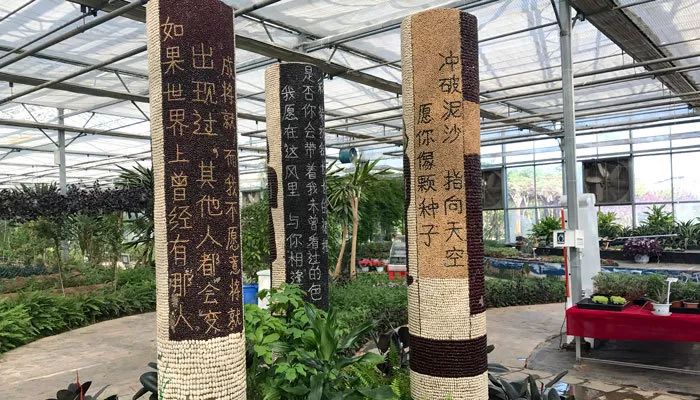 如果世界上曾经有那人
出现过，其他人都会变
成将就 而我不愿意将就
我愿在这风里 与你相逢
是否你会带着我未曾看过的包
愿你像颗种子
冲破泥沙 指向天空